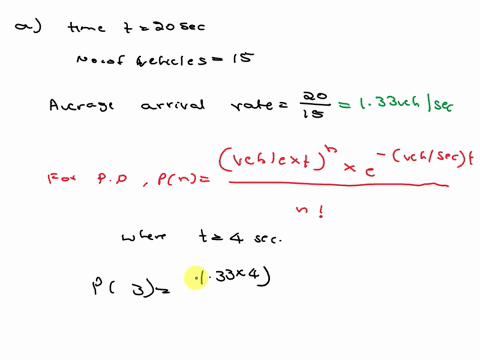 a) time t = 20 sec
No. of Vehicles = 15
Average arrival rate = 20/15 = 1.33 veh/sec
For P.D, P(n) = (veh/sec x t)^n x e^-(veh/sec)t / n!
where t = 4 sec.
P( 3) = (1.33 x 4)